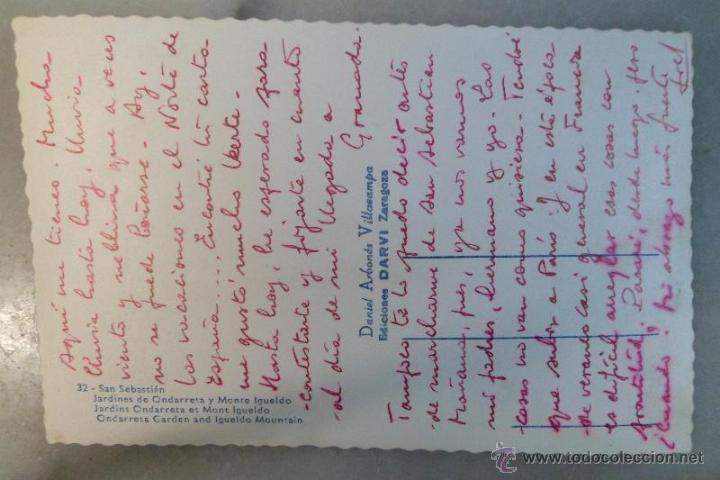 Aquí me tienes. Mucha
lluvia hasta hoy, lluvia
viento y niebla que a veces
no se puede bañarse - Ay,
las vacaciones en el Norte de
España .... Encontré tu carta
me gustó mucho leerte -
Hasta hoy, he esperado para
contestarte y fijarte en cuanto
al día de mi llegada a
Granada.
32 - San Sebastián
Jardines de Ondarreta y Monte Igueldo
Jardins Ondarreta et Mont Igueldo
Ondarreta Garden and Igueldo Mountain
Daniel Arbonés Villacampa
Ediciones DARVI Zaragoza
Tampoco te lo puedo decir antes
de marcharme de San Sebastian
Mañana, pues, ya nos vamos
mi padres, hermano y yo. Las
cosas no van como quisiera - Tendré
que subir a París y en esta época
de veraneo casi general en Francia
es difícil arreglar esas cosas con
prontitud. desde luego. Pero
¿Cuándo? Mi abrazo más fuerte
www.todocoleccion.net